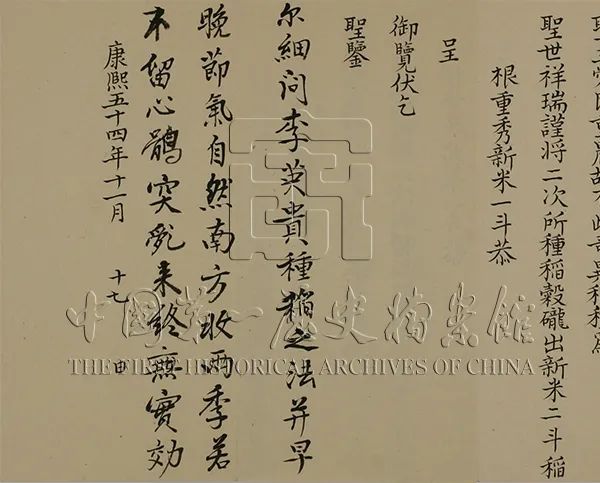 聖世祥瑞謹将二次所種稻穀礱出新米二斗稻
根重秀新米一斗恭
呈
御覽伏乞
聖鑒
尔細问李英貴種稲之法并早
晚莭氣自然南方收両季若
不留心鶻突亂来終無實効
康熙五十四年十一月 十七
中國第一歷史檔案館
THE FIRST HISTORICAL ARCHIVES OF CHINA